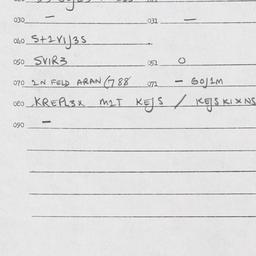 030 — 031 —
040 S+2V1J3S
050 SVIR3 051 O
070 2N FELD ARAN (788 071 — GOJ1M
080 KREPL3X M2T KEJS / KEJSKIXNS
090 —